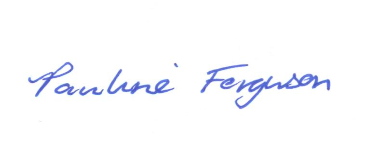 Pauline Ferguson